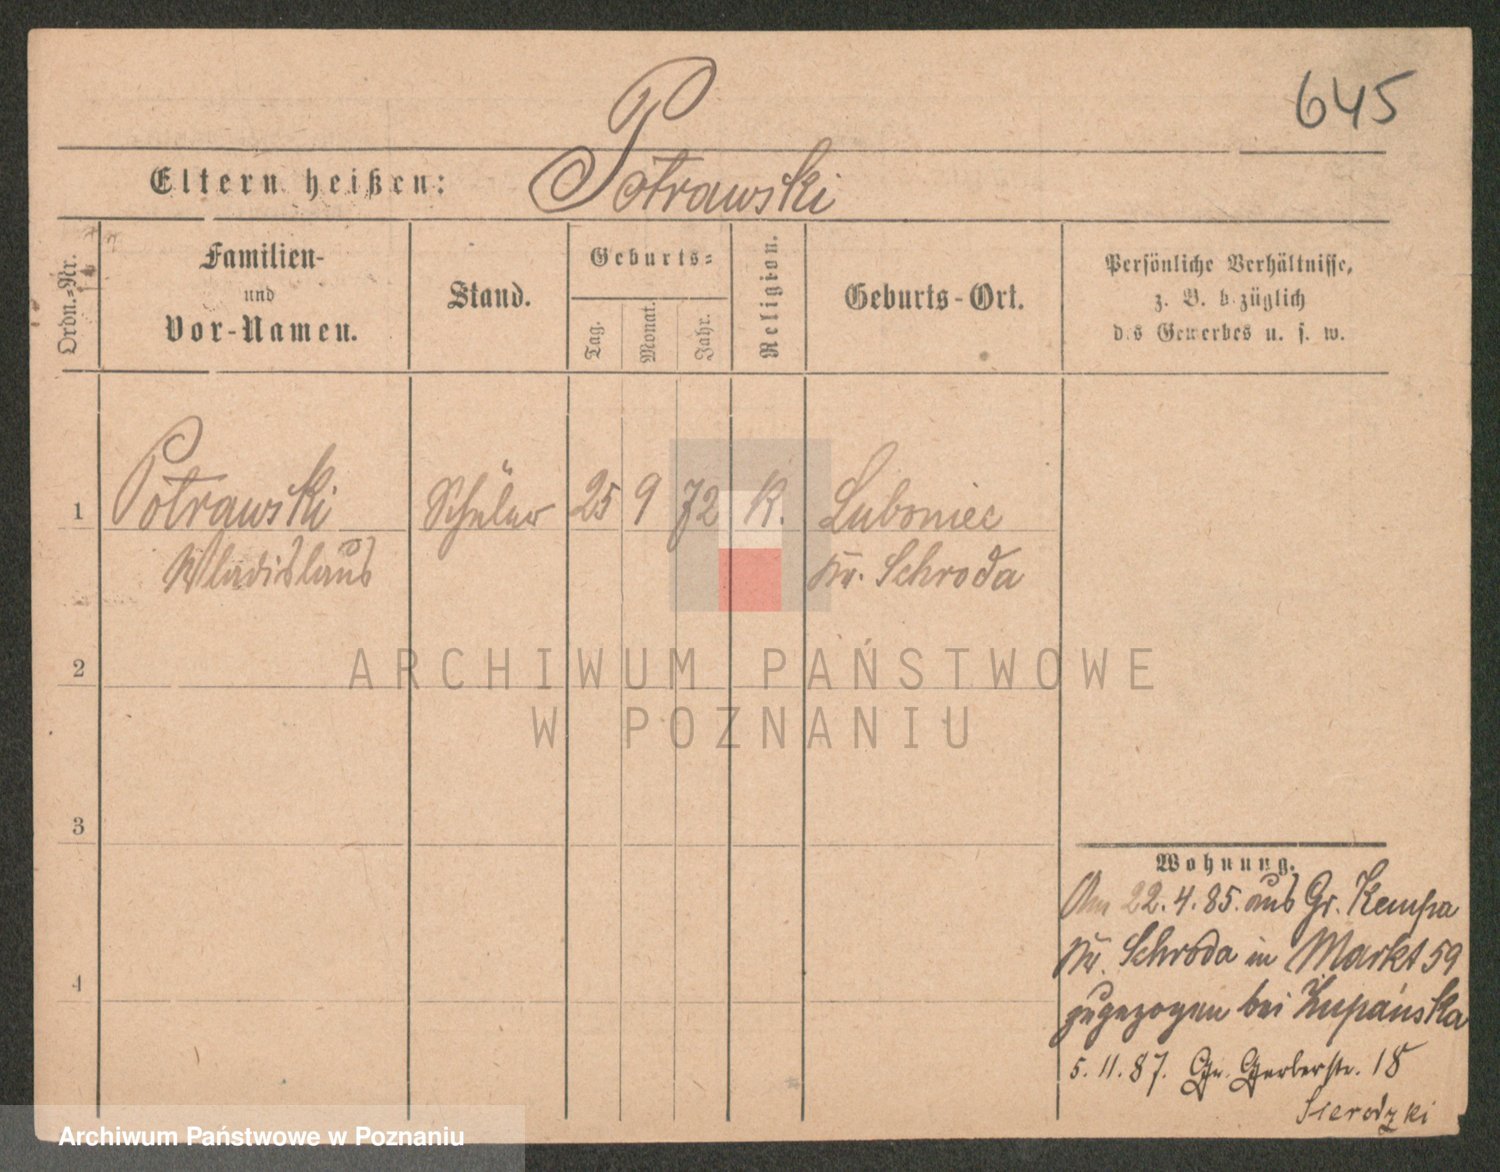 645
Eltern heißen: Potrawski
Ordn.-Nr.
Familien-
und
Vor-Namen.
Stand.
Geburts-
Tag.
Monat.
Jahr.
Religion.
Geburts-Ort.
Persönliche Verhältnisse,
z. B. bezüglich
des Gewerbes u. s. w.
1 Potrawski Schüler 25 9 72 K. Luboniec
Wladislaus Kr. Schroda
2
3
4
ARCHIWUM PAŃSTWOWE
W POZNANIU
Wohnung.
Am 22.4.85. aus Gr. Kempa
Kr. Schroda in Markt 59
zugezogen bei Zupańska
5.11.87. Gr. Gerberstr. 18
Sierodzki
Archiwum Państwowe w Poznaniu